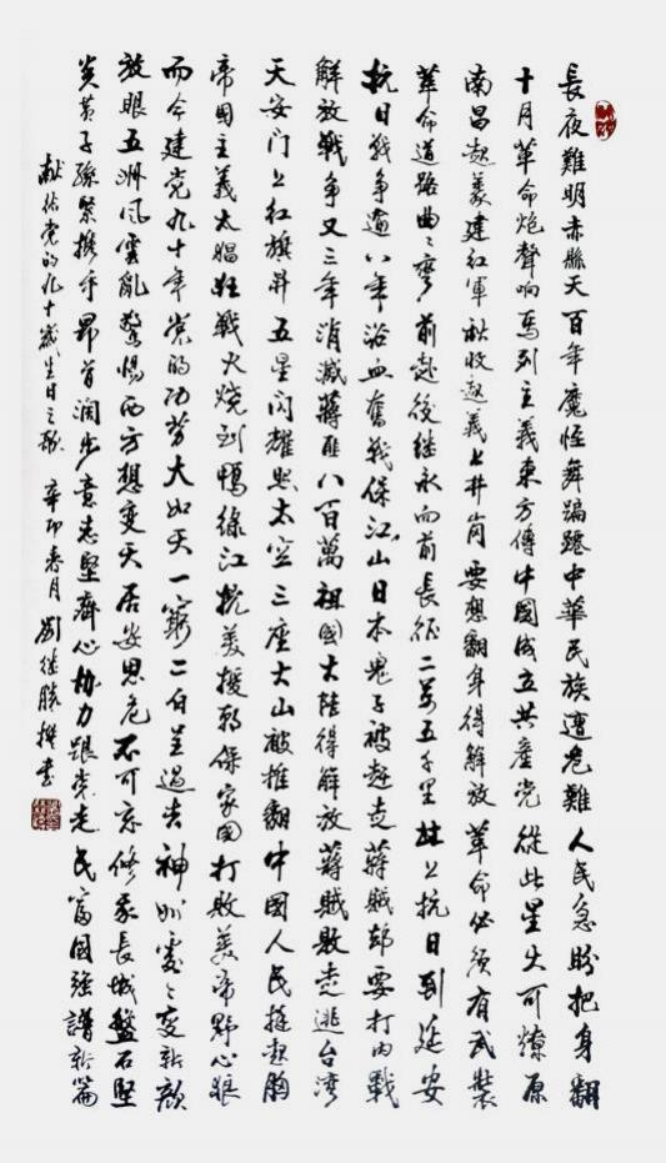 長夜難明赤縣天百年魔怪舞蹁躚中華民族遭危難人民急盼把身翻
十月革命炮聲响馬列主義東方傳中國成立共產党從此星火可燎原
南昌起義建红軍秋收起義上井崗要想翻身得解放革命必須有武裝
革命道路曲々彎前赴後继永向前長征二萬五千里北上抗日到延安
抗日戰争逾八年浴血奮戰保江山日本鬼子被赶走蔣賊却要打内戰
解放戰争又三年消滅蔣匪八百萬祖國大陸得解放蔣賊敗走逃台湾
天安门上红旗升五星闪耀照太空三座大山被推翻中國人民挺起胸
帝國主義太猖狂戰火燒到鴨绿江抗美援朝保家國打敗美帝野心狼
而今建党九十年党的功勞大如天一窮二白呈過去神州處々變新顏
放眼五洲風雲亂警惕西方想变天居安思危不可忘修我長城盤石堅
炎黄子孫緊攜手昂首阔步意志堅齊心协力跟党走民富國強譜新篇
献给党的九十歲生日之歌 辛卯春月 劉继勝撰書